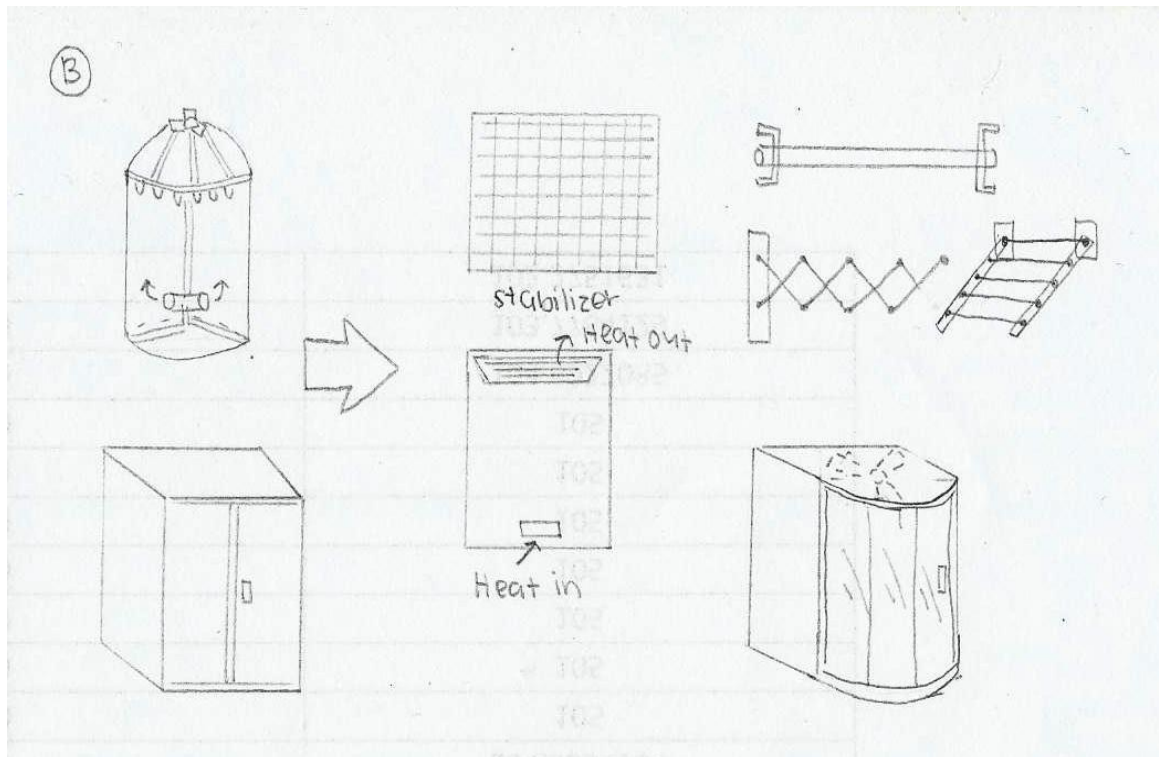 B
stabilizer
Heat out
Heat in